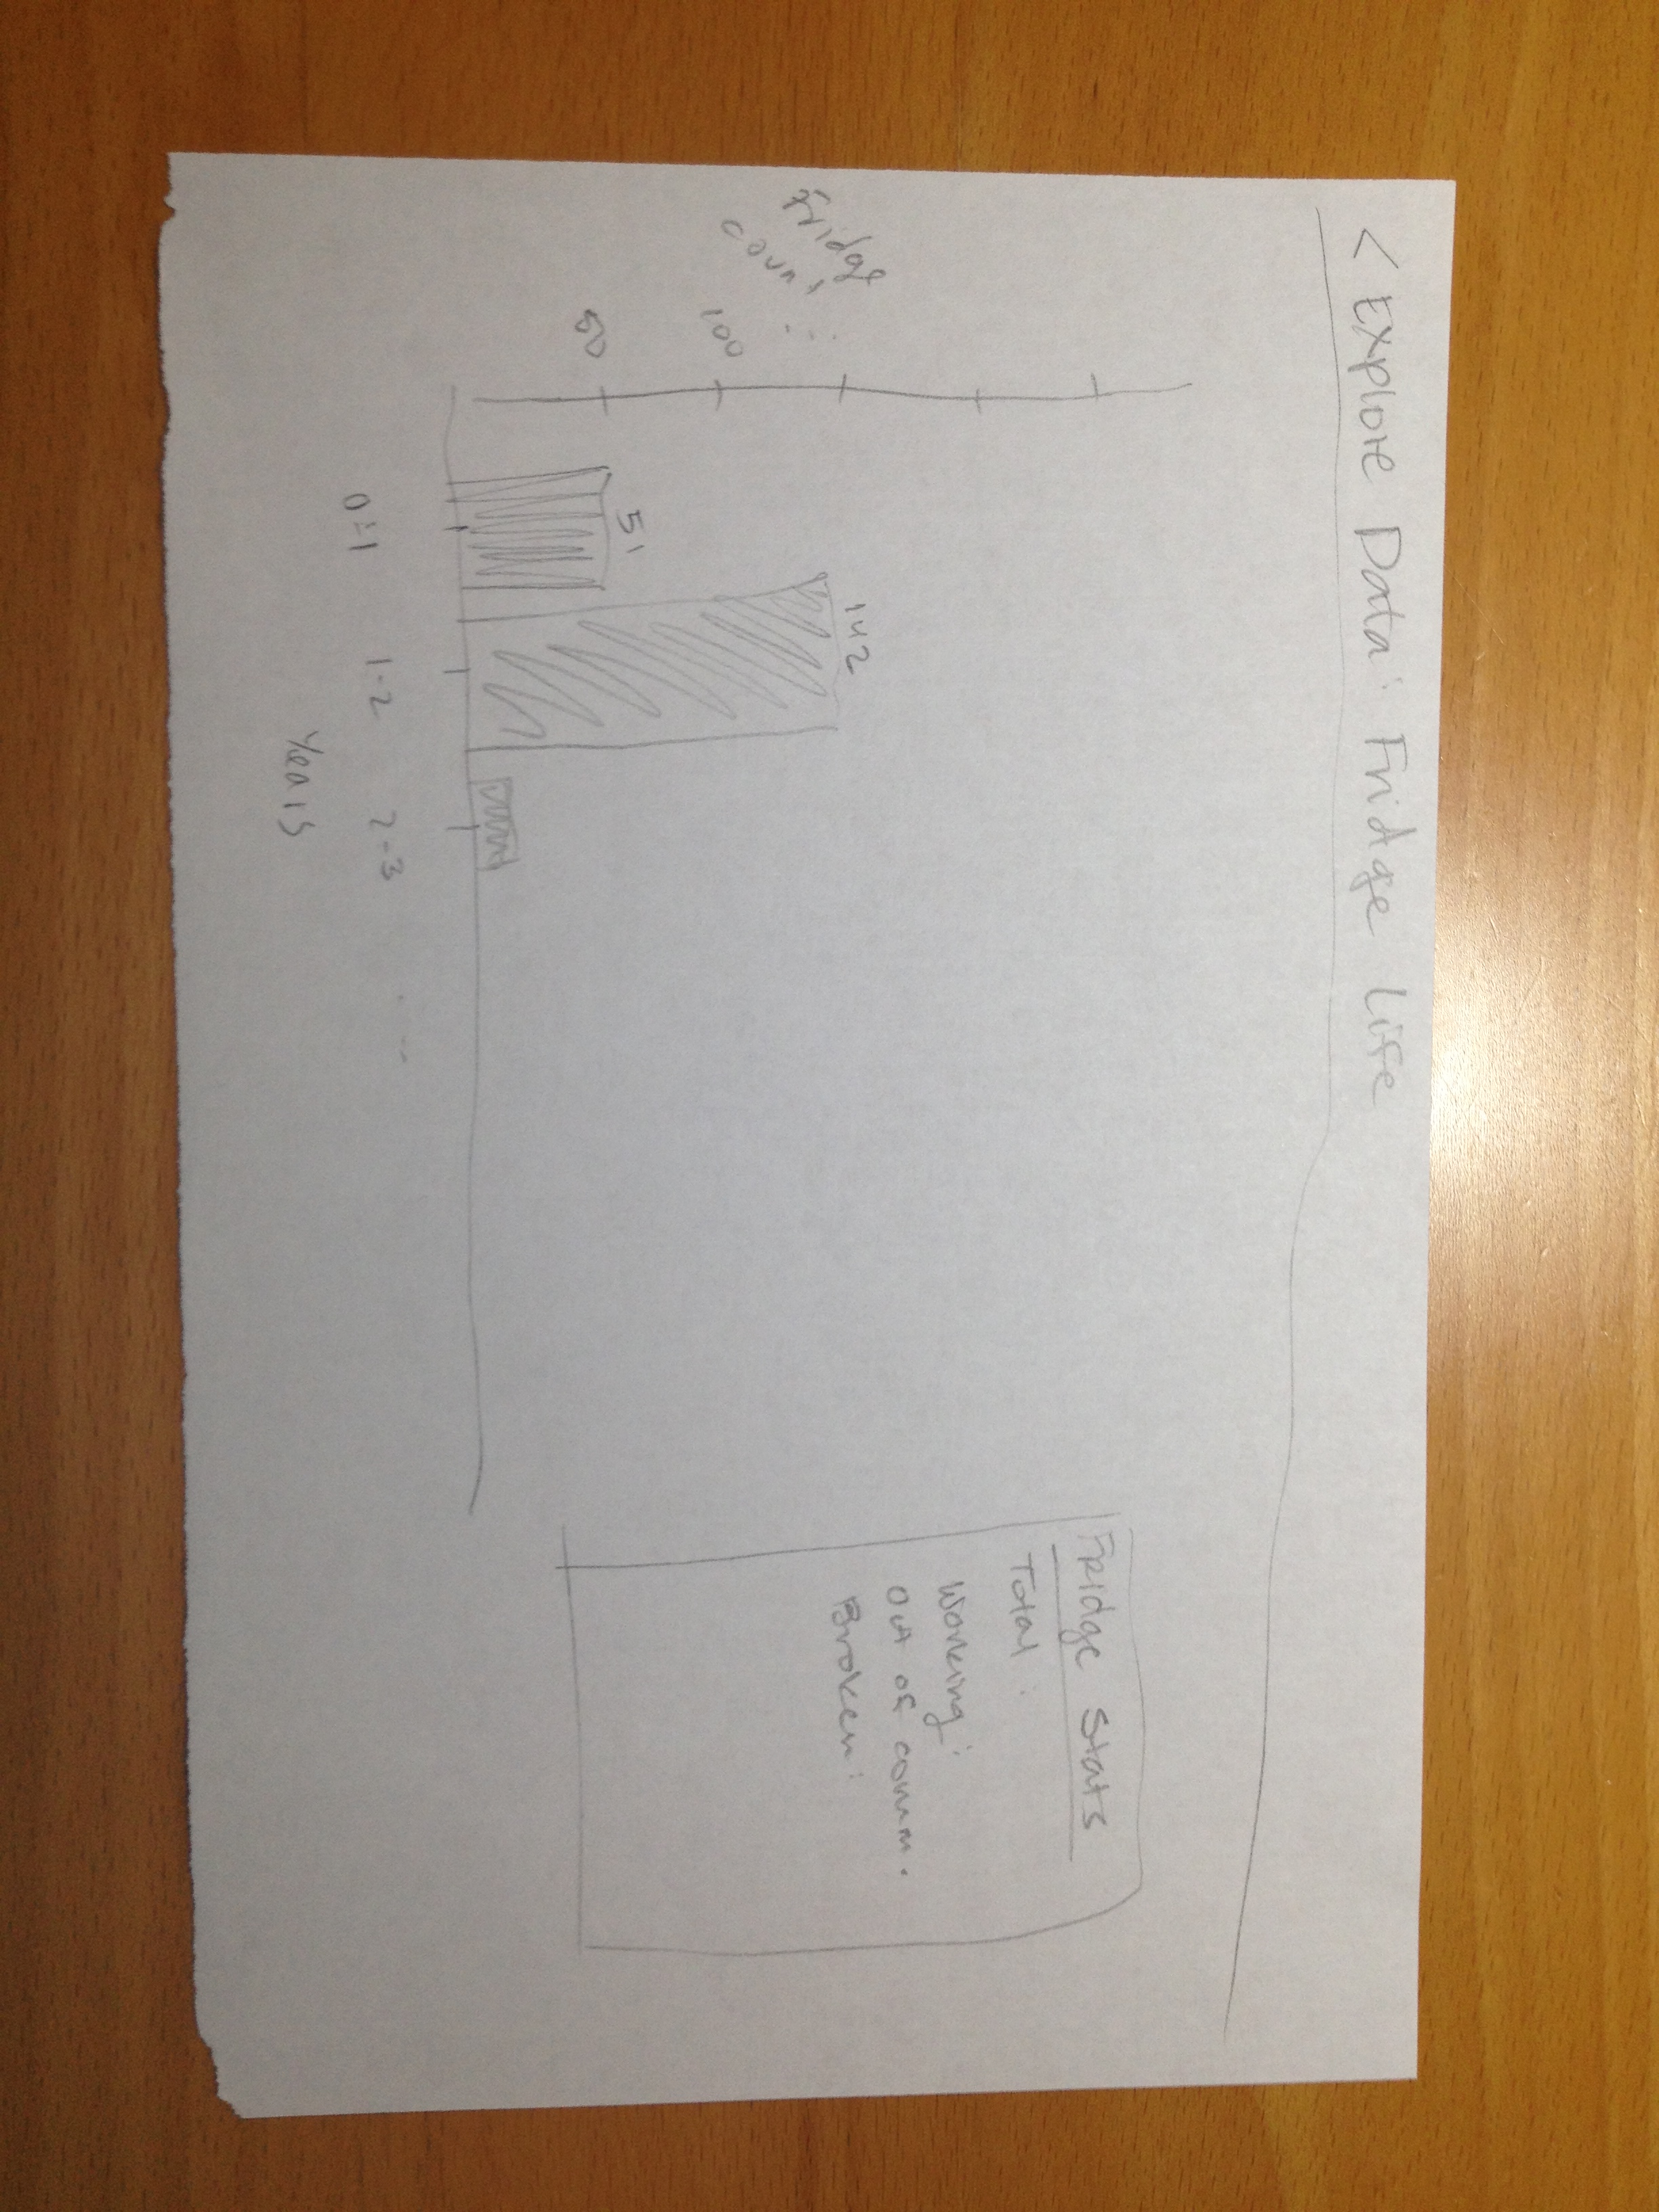 < Explore Data: Fridge Life
Fridge
Count
100
50
51
142
0-1
1-2
2-3
...
Years
Fridge Stats
Total:
Working:
Out of comm.
Broken: